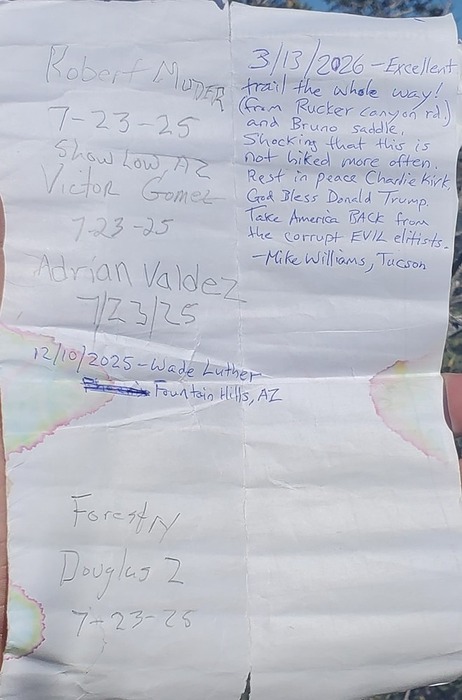 Robert MUDER
7-23-25
Show Low, AZ
Victor Gomez
7-23-25
Adrian Valdez
7/23/25
12/10/2025-Wade Luther
Fountain Hills, AZ
Forestry
Douglas 2
7-23-25
3/13/2026-Excellent
trail the whole way!
(from Rucker canyon rd.)
and Bruno saddle.
Shocking that this is
not hiked more often.
Rest in peace Charlie Kirk.
God Bless Donald Trump.
Take America BACK from
the corrupt EVIL elitists.
-Mike Williams, Tucson